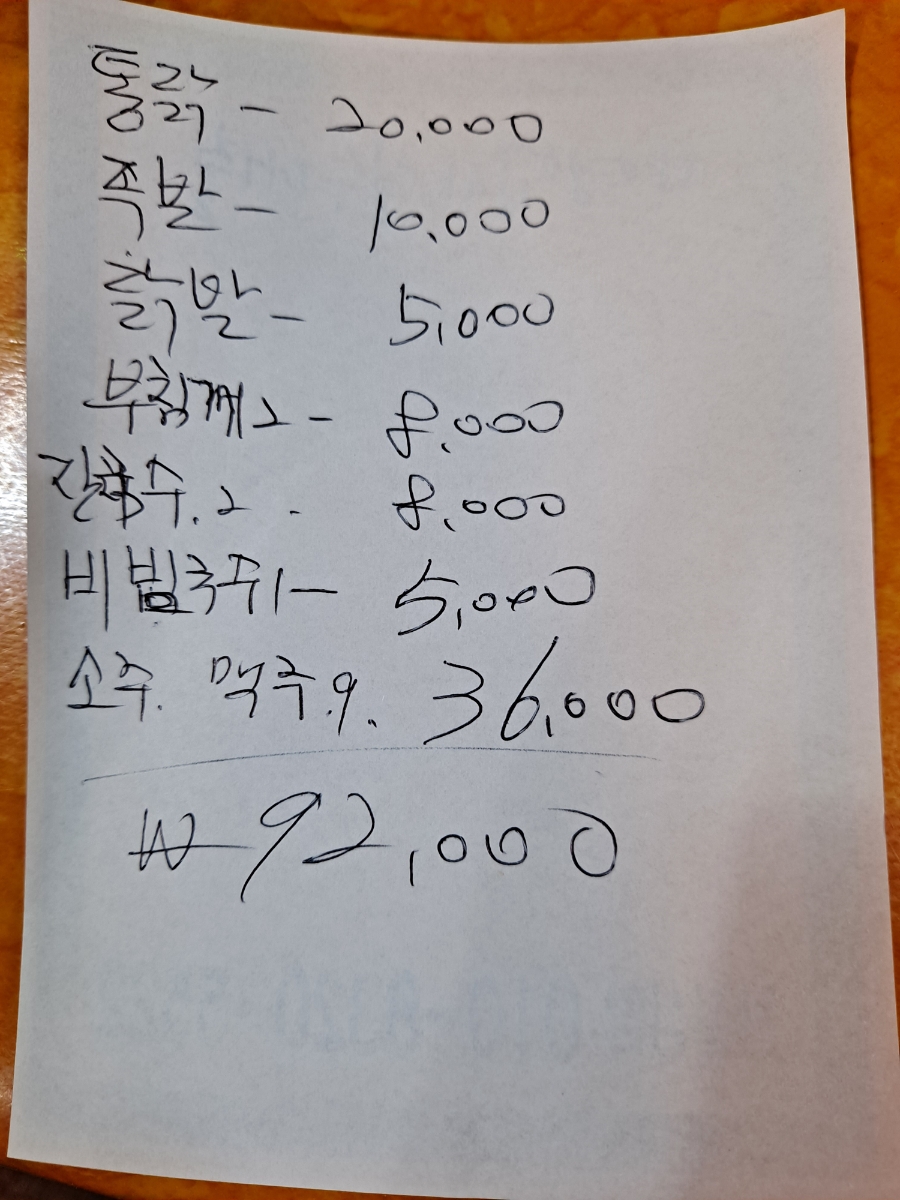 통닭 - 20,000
족발 - 10,000
닭발 - 5,000
부침께2 - 8,000
잔국수.2 - 8,000
비빔국수1 - 5,000
소주. 맥주.9. 36,000
₩ 92,000